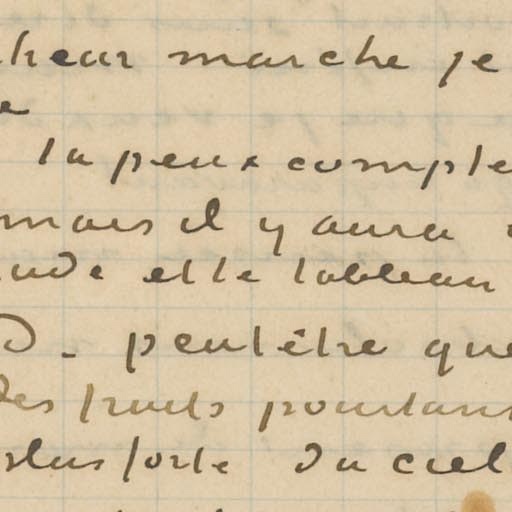 marche je
tu peux compte
mais il y aura
et le tableau
peut être que
des fruits pourtant
plus forte du ciel